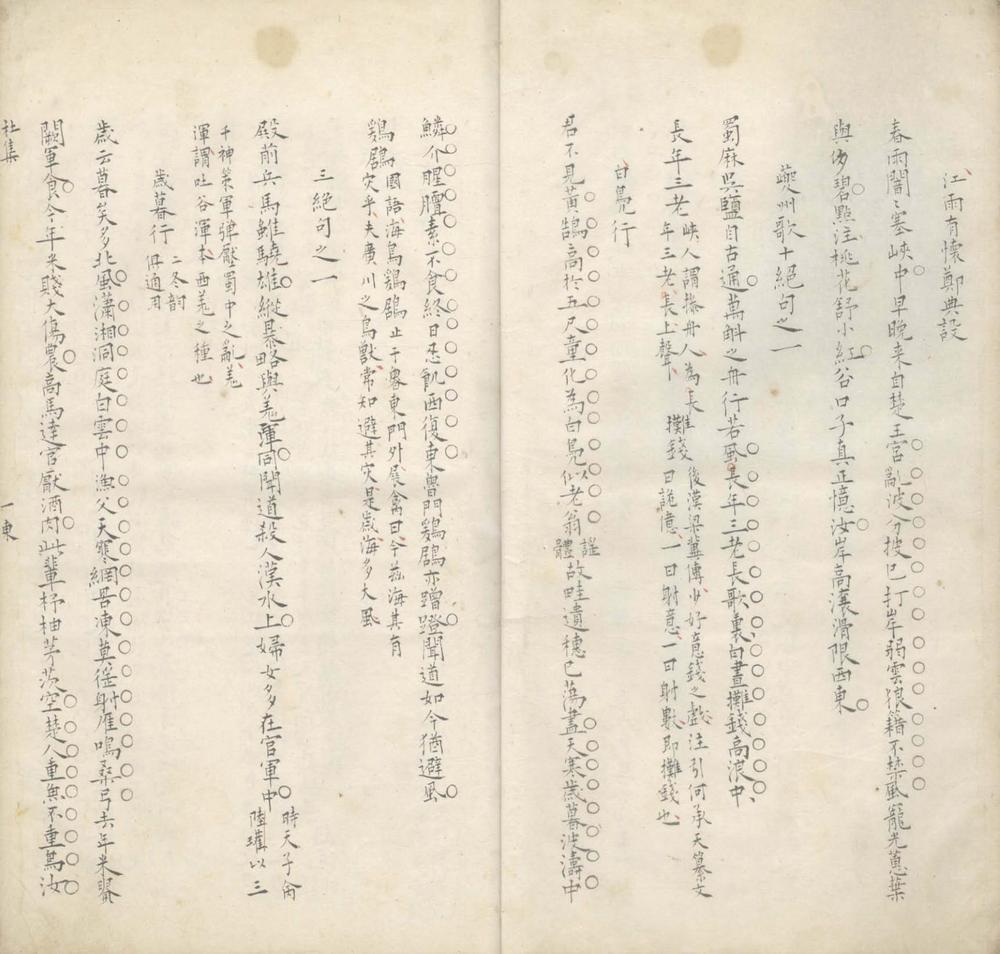 江雨有懷鄭典設
春雨闇〻塞峽中早晚来自楚王宮亂波分披已打岸弱雲狼籍不禁風寵光蕙葉
與多碧點注桃花舒小紅谷口子真正憶汝岸高瀼滑限西東
夔州歌十絕句之一
蜀麻吳鹽自古通萬斛之舟行若風長年三老長歌裏白晝攤錢高浪中
長年三老峽人謂操舟人為長
年三老長上聲
攤錢後漢梁冀傳少好意錢之戲注引何承天纂文
曰詭億一曰射意一曰射數即攤錢也
白鳧行
君不見黃鵠高於五尺童化為白鳧似老翁謠
體故畦遺穗已蕩盡天寒歲暮波濤中
鱗介腥膻素不食終日忍飢西復東魯門鶢鶋亦蹭蹬聞道如今猶避風
鶢鶋國語海鳥鶢鶋止于魯東門外展禽曰今茲海其有
災乎夫廣川之鳥獸常知避其災是歲海多大風
三絕句之一
殿前兵馬雖驍雄縱暴略與羌渾同聞道殺人漢水上婦女多在官軍中
時天子命
陸瓘以三
千神策軍弹壓蜀中之亂羌
渾謂吐谷渾本西羌之種也
歲暮行二冬韵
俱通用
歲云暮矣多北風瀟湘洞庭白雲中漁父天寒網罟凍莫徭射雁鳴桑弓去年米貴
闕軍食今年米賤大傷農高馬達官厭酒肉此輩杼柚茅茨空楚人重魚不重鳥汝
杜集
一東